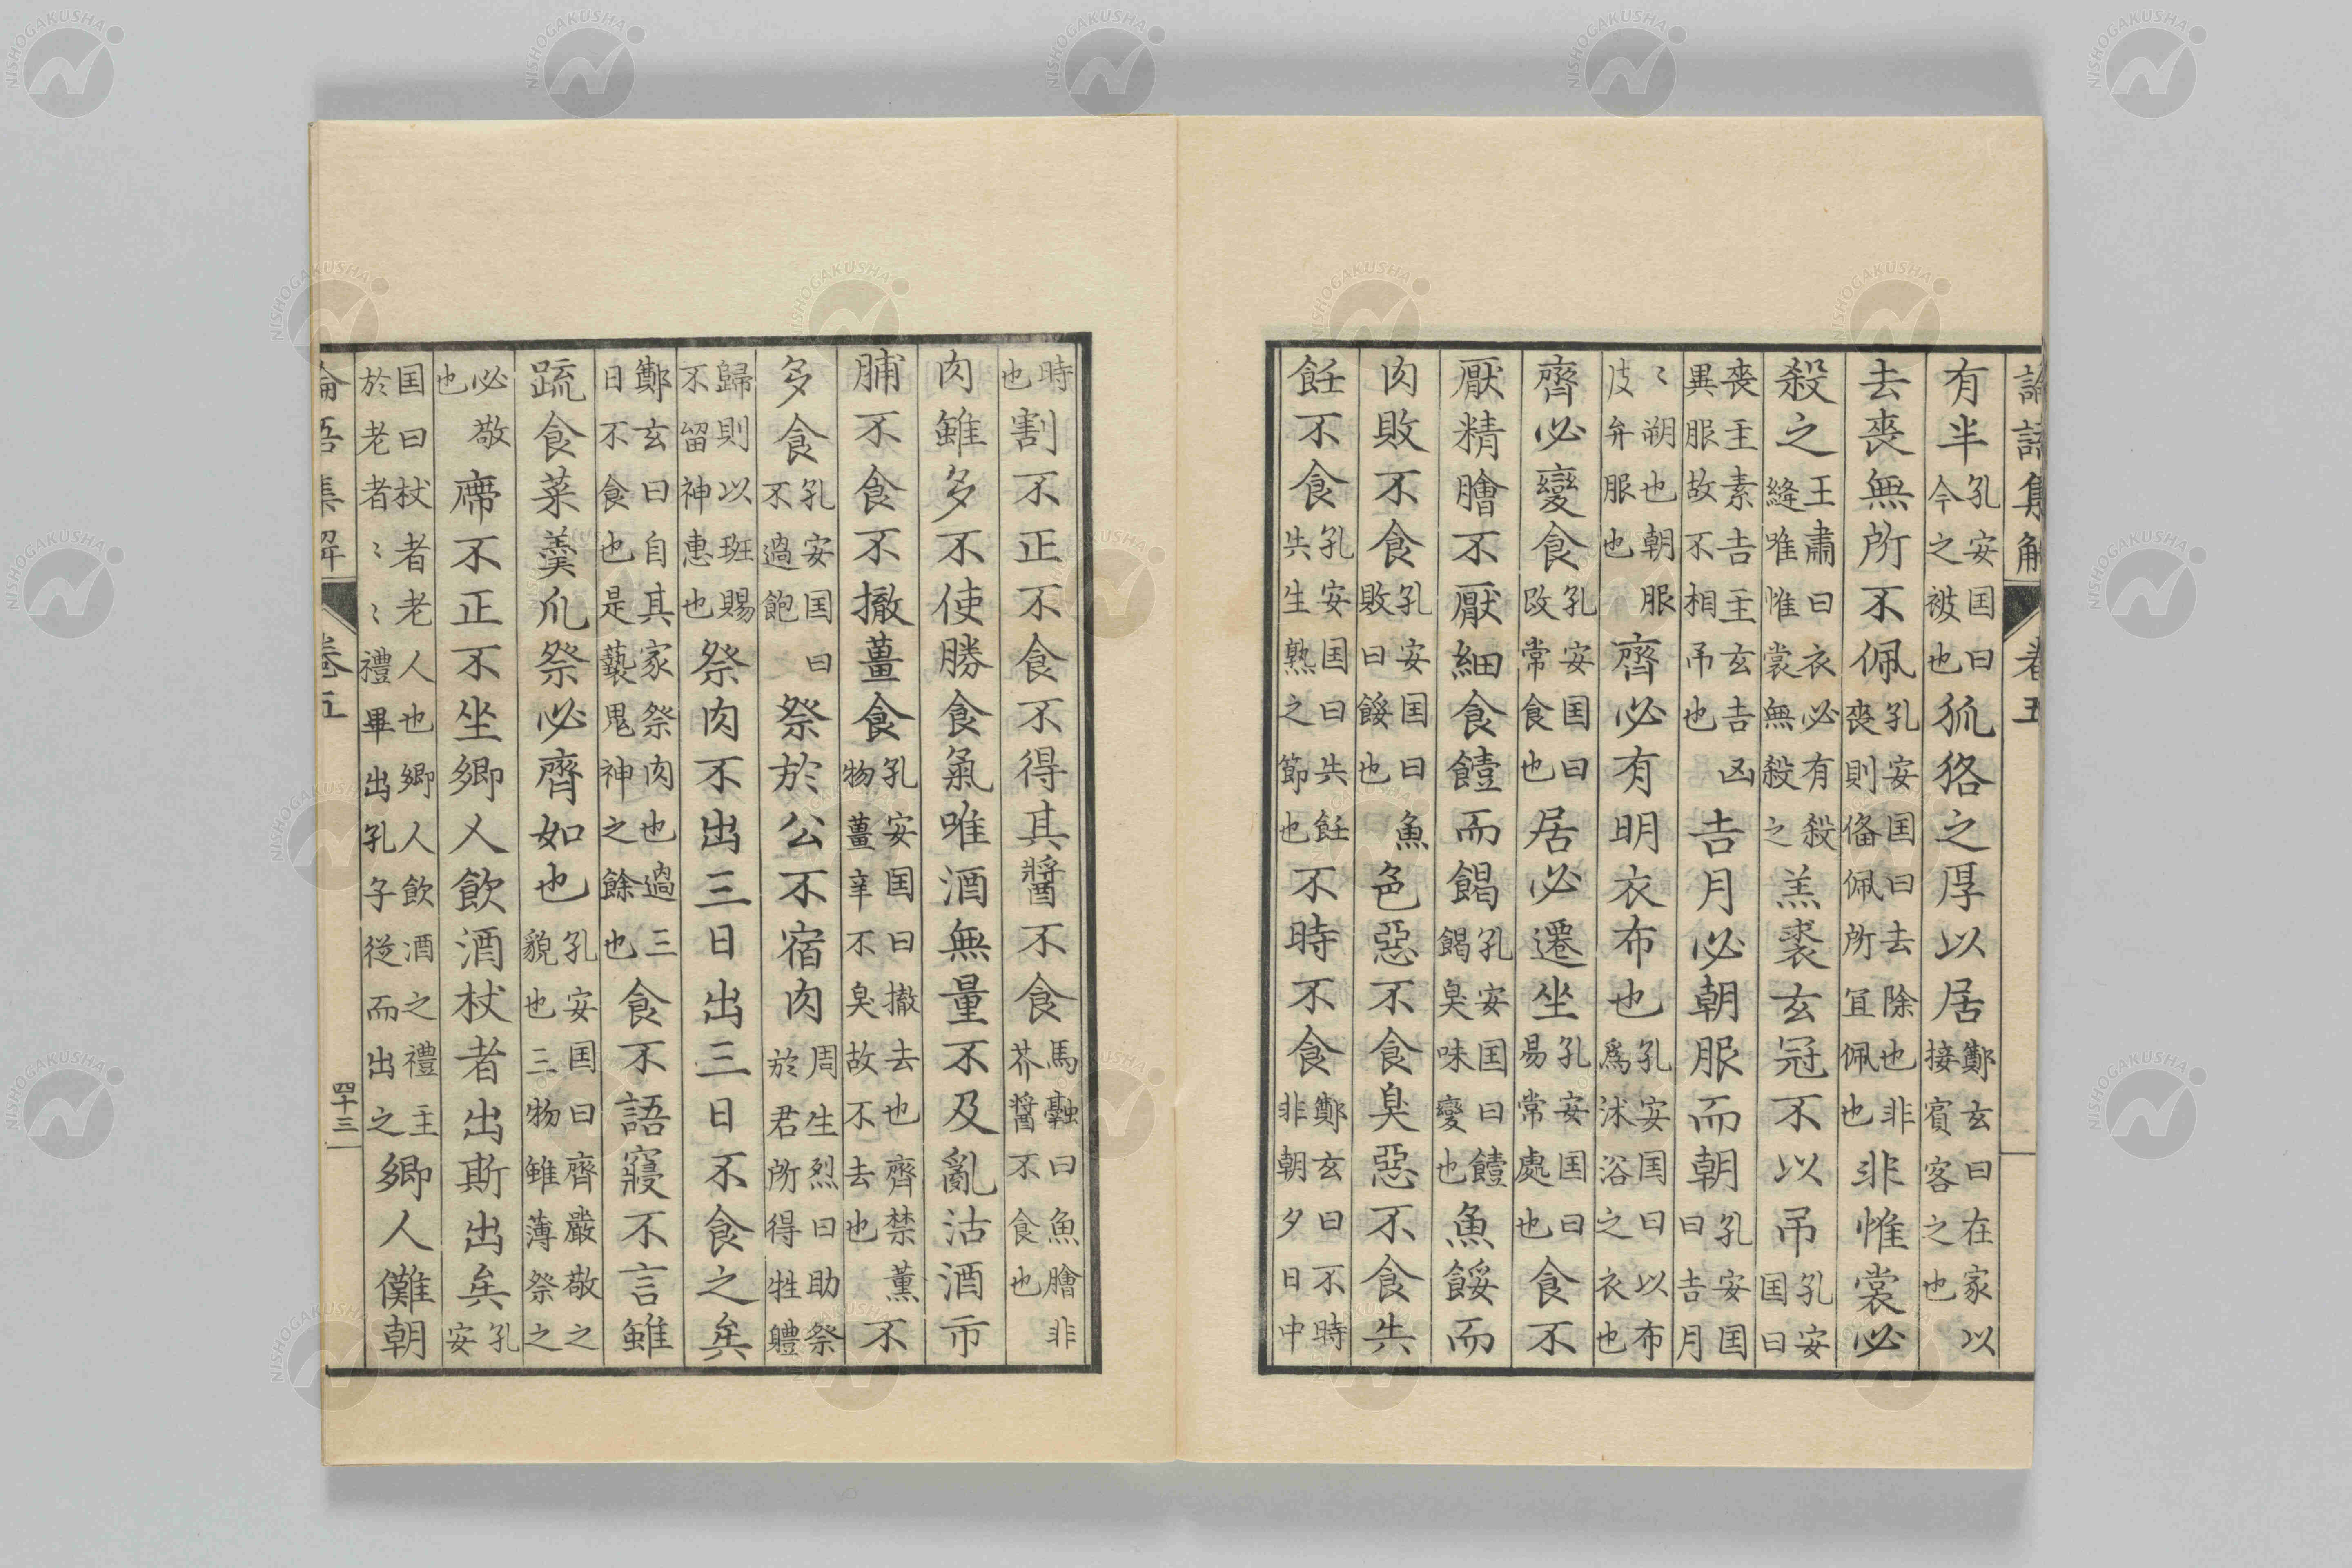 論語集解 卷五
有半孔安国曰今之被也狐狢之厚以居鄭玄曰在家以接賓客之也
去喪無所不佩孔安国曰去除也非喪則俻佩所冝佩也非惟裳必
殺之王肅曰衣必有殺縫唯惟裳無殺之羔裘玄冠不以吊孔安国曰
喪主素吉主玄吉凶異服故不相吊也吉月必朝服而朝孔安国曰吉月
〻朔也朝服皮弁服也齊必有明衣布也孔安国曰以布爲沐浴之衣也
齊必變食孔安国曰改常食也居必遷坐孔安国曰易常處也食不
厭精膾不厭細食饐而餲孔安国曰饐餲臭味變也魚餒而
肉敗不食孔安国曰魚敗曰餒也色惡不食臭惡不食失
飪不食孔安国曰失飪失生熟之節也不時不食鄭玄曰不時非朝夕日中
時也割不正不食不得其醬不食馬融曰魚膾非芥醬不食也
肉雖多不使勝食氣唯酒無量不及亂沽酒市
脯不食不撤薑食孔安国曰撤去也齊禁薰物薑辛不臭故不去也不
多食孔安国曰不過飽祭於公不宿肉周生烈曰助祭於君所得牲體
歸則以班賜不留神惠也祭肉不出三日出三日不食之矣
鄭玄曰自其家祭肉也過三日不食也是褻鬼神之餘也食不語寢不言雖
疏食菜羹瓜祭必齊如也孔安国曰齊嚴敬之貌也三物雖薄祭之
必敬也席不正不坐鄉人飲酒杖者出斯出矣孔安
国曰杖者老人也鄉人飲酒之禮主於老者〻〻禮畢出孔子從而出之鄉人儺朝
論語集解 卷五 四十三
NISHOGAKUSHA